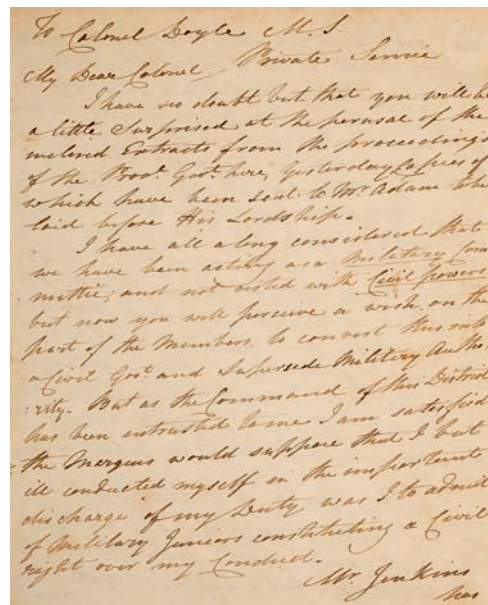 To Colonel Doyle M. S.
Private Service
My Dear Colonel
I have no doubt but that you will be
a little Surprised at the perusal of the
inclosed Extracts from the proceedings
of the Provl. Govt. here, Yesterday, Copies of
which have been sent to Mr. Adam to be
laid before His Lordship.
I have all along considered that
we have been acting as a Military Com
mittie, and not visted with Civil powers
but now you will perceive a wish on the
part of the Members, to convert this into
a Civil Govt. and Supersede Military Autho
:rity. But as the Command of this District
has been entrusted to me I am satisfied
the Marquis would suppose that I but
ill conducted myself in the important
discharge of my Duty was I to admit
of Military Juniors constituting a Civil
right over my Conduct.
Mr. Jenkins
has